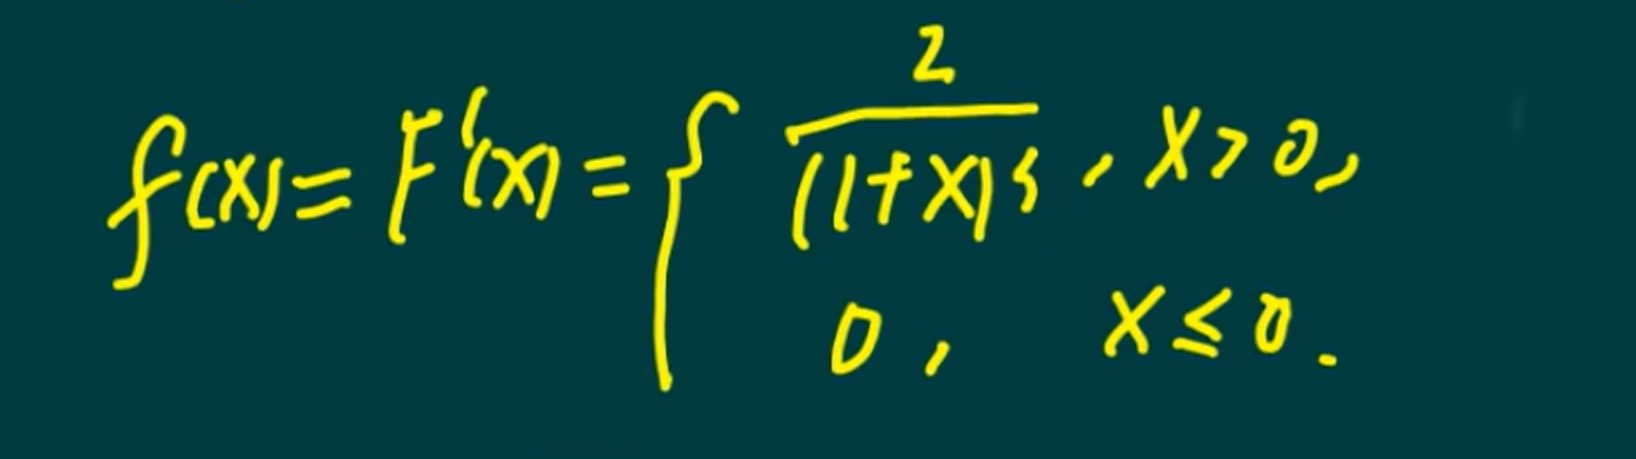 f(x) = F'(x) = { 2/(1+x)³, x>0,
0, x≤0.